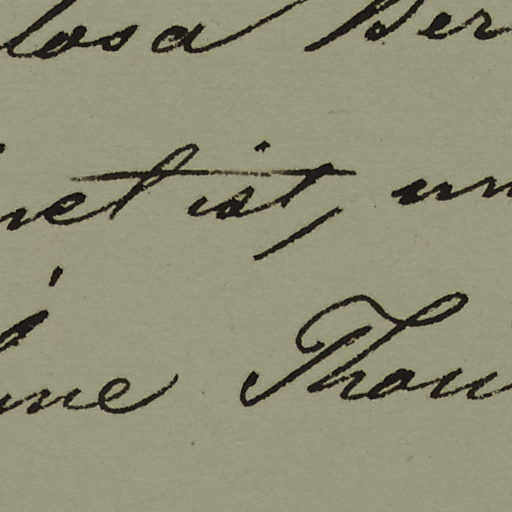 losa Ber
net ist, un
ine Thou